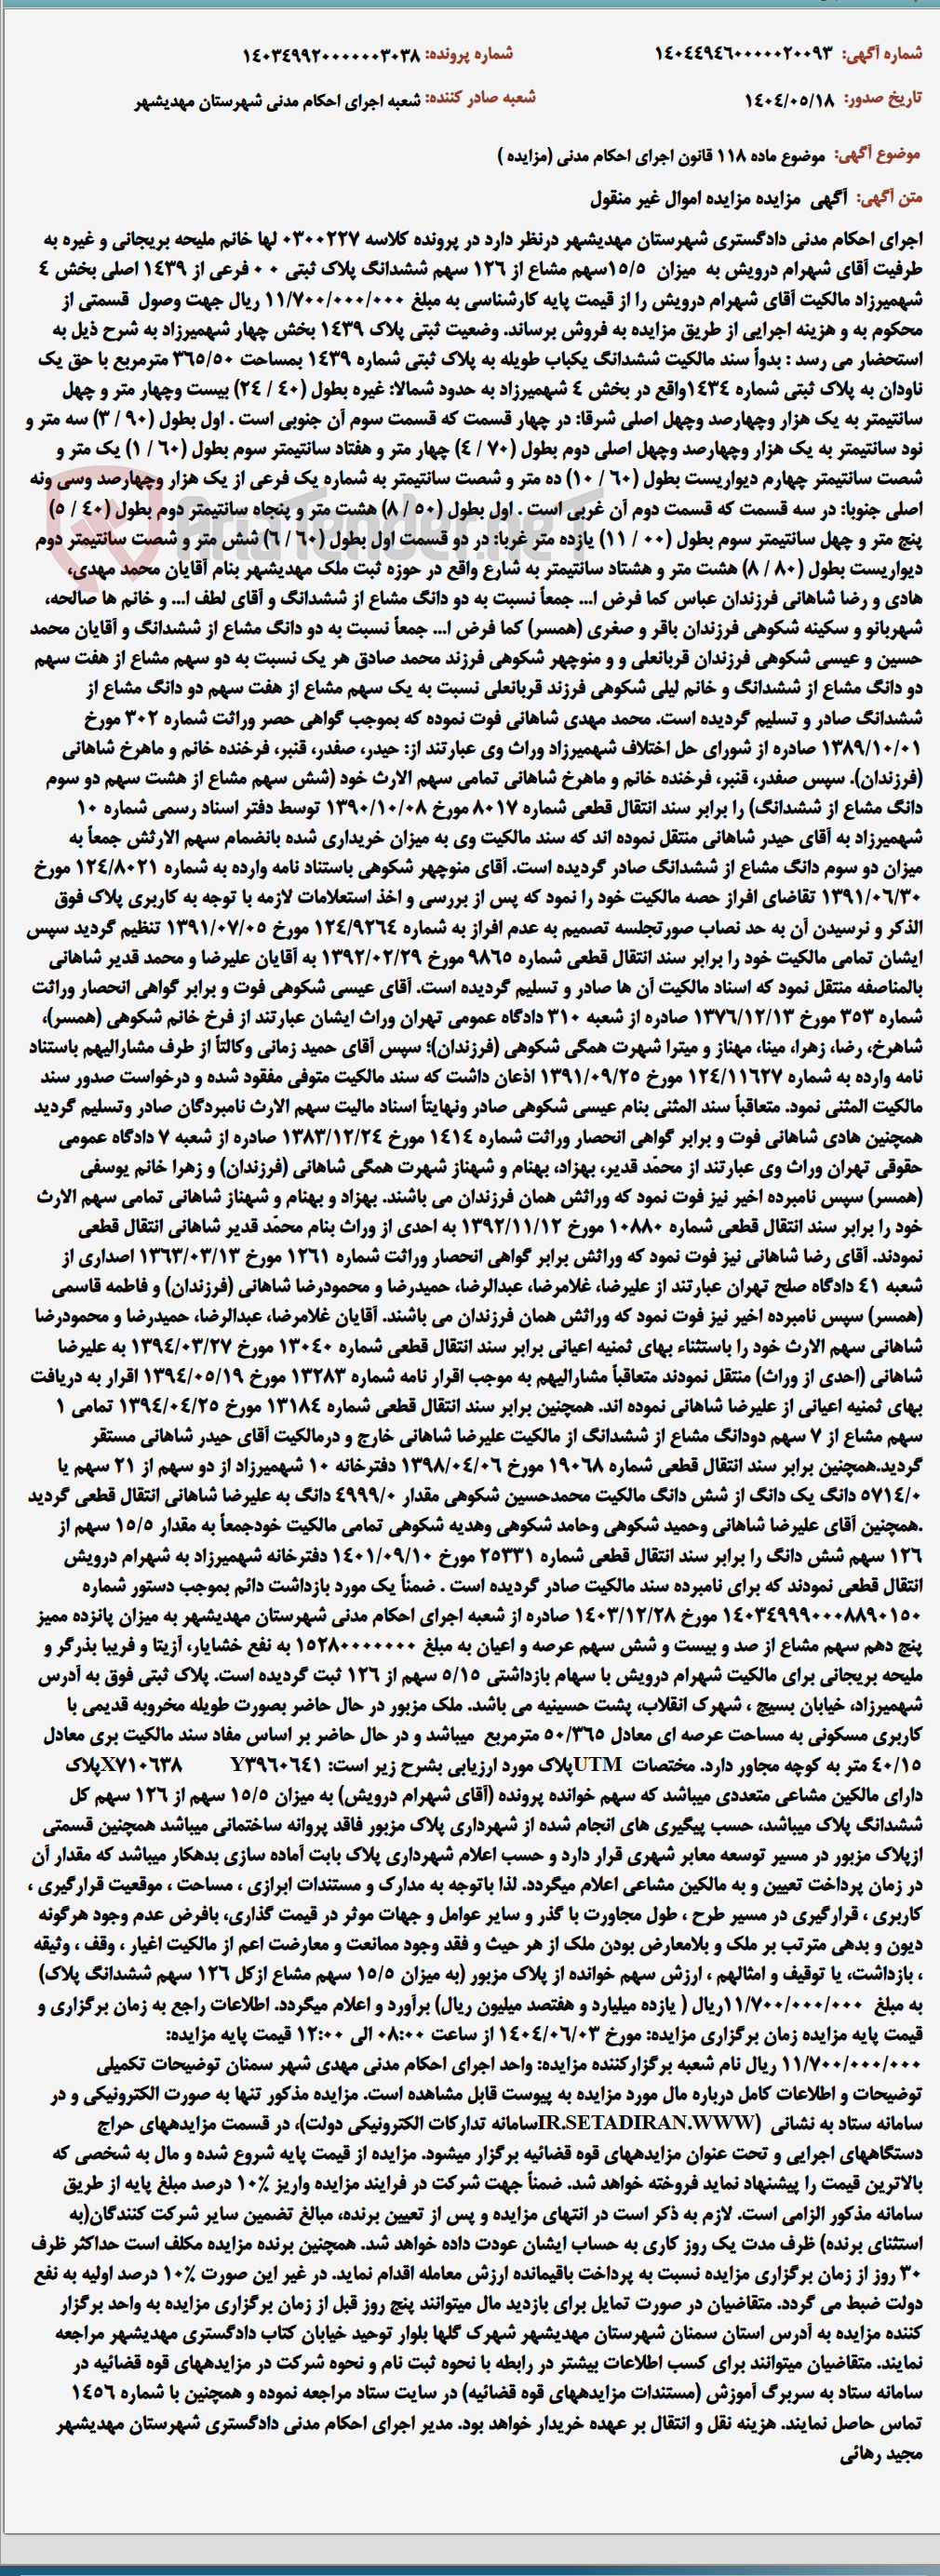 شماره آگهی: ۱۴۰۴۴۹۴۶۰۰۰۰۰۲۰۰۹۳ شماره پرونده: ۱۴۰۳۴۹۹۲۰۰۰۰۰۰۳۰۳۸
تاریخ صدور: ۱۴۰۴/۰۵/۱۸ شعبه صادر کننده: شعبه اجرای احکام مدنی شهرستان مهدیشهر
موضوع آگهی: موضوع ماده ۱۱۸ قانون اجرای احکام مدنی (مزایده )
متن آگهی: آگهی مزایده مزایده اموال غیر منقول
اجرای احکام مدنی دادگستری شهرستان مهدیشهر درنظر دارد در پرونده کلاسه ۰۳۰۰۲۲۷ لها خانم ملیحه بریجانی و غیره به
طرفیت آقای شهرام درویش به میزان ۱۵/۵سهم مشاع از ۱۲۶ سهم ششدانگ پلاک ثبتی ۰ ۰ فرعی از ۱۴۳۹ اصلی بخش ۴
شهمیرزاد مالکیت آقای شهرام درویش را از قیمت پایه کارشناسی به مبلغ ۱۱/۷۰۰/۰۰۰/۰۰۰ ریال جهت وصول قسمتی از
محکوم به و هزینه اجرایی از طریق مزایده به فروش برساند. وضعیت ثبتی پلاک ۱۴۳۹ بخش چهار شهمیرزاد به شرح ذیل به
استحضار می رسد : بدواً سند مالکیت ششدانگ یکباب طویله به پلاک ثبتی شماره ۱۴۳۹ بمساحت ۳۶۵/۵۰ مترمربع با حق یک
ناودان به پلاک ثبتی شماره ۱۴۳۴واقع در بخش ۴ شهمیرزاد به حدود شمالا: غیره بطول (۴۰ / ۲۴) بیست وچهار متر و چهل
سانتیمتر به یک هزار وچهارصد وچهل اصلی شرقا: در چهار قسمت که قسمت سوم آن جنوبی است . اول بطول (۹۰ / ۳) سه متر و
نود سانتیمتر به یک هزار وچهارصد وچهل اصلی دوم بطول (۷۰ / ۴) چهار متر و هفتاد سانتیمتر سوم بطول (۶۰ / ۱) یک متر و
شصت سانتیمتر چهارم دیواریست بطول (۶۰ / ۱۰) ده متر و شصت سانتیمتر به شماره یک فرعی از یک هزار وچهارصد وسی ونه
اصلی جنوبا: در سه قسمت که قسمت دوم آن غربی است . اول بطول (۵۰ / ۸) هشت متر و پنجاه سانتیمتر دوم بطول (۴۰ / ۵)
پنج متر و چهل سانتیمتر سوم بطول (۰۰ / ۱۱) یازده متر غربا: در دو قسمت اول بطول (۶۰ / ۶) شش متر و شصت سانتیمتر دوم
دیواریست بطول (۸۰ / ۸) هشت متر و هشتاد سانتیمتر به شارع واقع در حوزه ثبت ملک مهدیشهر بنام آقایان محمد مهدی،
هادی و رضا شاهانی فرزندان عباس کما فرض ا... جمعاً نسبت به دو دانگ مشاع از ششدانگ و آقای لطف ا... و خانم ها صالحه،
شهربانو و سکینه شکوهی فرزندان باقر و صغری (همسر) کما فرض ا... جمعاً نسبت به دو دانگ مشاع از ششدانگ و آقایان محمد
حسین و عیسی شکوهی فرزندان قربانعلی و و منوچهر شکوهی فرزند محمد صادق هر یک نسبت به دو سهم مشاع از هفت سهم
دو دانگ مشاع از ششدانگ و خانم لیلی شکوهی فرزند قربانعلی نسبت به یک سهم مشاع از هفت سهم دو دانگ مشاع از
ششدانگ صادر و تسلیم گردیده است. محمد مهدی شاهانی فوت نموده که بموجب گواهی حصر وراثت شماره ۳۰۲ مورخ
۱۳۸۹/۱۰/۰۱ صادره از شورای حل اختلاف شهمیرزاد وراث وی عبارتند از: حیدر، صفدر، قنبر، فرخنده خانم و ماهرخ شاهانی
(فرزندان). سپس صفدر، قنبر، فرخنده خانم و ماهرخ شاهانی تمامی سهم الارث خود (شش سهم مشاع از هشت سهم دو سوم
دانگ مشاع از ششدانگ) را برابر سند انتقال قطعی شماره ۸۰۱۷ مورخ ۱۳۹۰/۱۰/۰۸ توسط دفتر اسناد رسمی شماره ۱۰
شهمیرزاد به آقای حیدر شاهانی منتقل نموده اند که سند مالکیت وی به میزان خریداری شده بانضمام سهم الارثش جمعاً به
میزان دو سوم دانگ مشاع از ششدانگ صادر گردیده است. آقای منوچهر شکوهی باستناد نامه وارده به شماره ۱۲۴/۸۰۲۱ مورخ
۱۳۹۱/۰۶/۳۰ تقاضای افراز حصه مالکیت خود را نمود که پس از بررسی و اخذ استعلامات لازمه با توجه به کاربری پلاک فوق
الذکر و نرسیدن آن به حد نصاب صورتجلسه تصمیم به عدم افراز به شماره ۱۲۴/۹۲۶۴ مورخ ۱۳۹۱/۰۷/۰۵ تنظیم گردید سپس
ایشان تمامی مالکیت خود را برابر سند انتقال قطعی شماره ۹۸۶۵ مورخ ۱۳۹۲/۰۲/۲۹ به آقایان علیرضا و محمد قدیر شاهانی
بالمناصفه منتقل نمود که اسناد مالکیت آن ها صادر و تسلیم گردیده است. آقای عیسی شکوهی فوت و برابر گواهی انحصار وراثت
شماره ۳۵۳ مورخ ۱۳۷۶/۱۲/۱۳ صادره از شعبه ۳۱۰ دادگاه عمومی تهران وراث ایشان عبارتند از فرخ خانم شکوهی (همسر)،
شاهرخ، رضا، زهرا، مینا، مهناز و میترا شهرت همگی شکوهی (فرزندان)؛ سپس آقای حمید زمانی وکالتاً از طرف مشارالیهم باستناد
نامه وارده به شماره ۱۲۴/۱۱۶۲۷ مورخ ۱۳۹۱/۰۹/۲۵ اذعان داشت که سند مالکیت متوفی مفقود شده و درخواست صدور سند
مالکیت المثنی نمود. متعاقباً سند المثنی بنام عیسی شکوهی صادر ونهایتاً اسناد مالیت سهم الارث نامبردگان صادر وتسلیم گردید
همچنین هادی شاهانی فوت و برابر گواهی انحصار وراثت شماره ۱۴۱۴ مورخ ۱۳۸۳/۱۲/۲۴ صادره از شعبه ۷ دادگاه عمومی
حقوقی تهران وراث وی عبارتند از محمّد قدیر، بهزاد، بهنام و شهناز شهرت همگی شاهانی (فرزندان) و زهرا خانم یوسفی
(همسر) سپس نامبرده اخیر نیز فوت نمود که وراثش همان فرزندان می باشند. بهزاد و بهنام و شهناز شاهانی تمامی سهم الارث
خود را برابر سند انتقال قطعی شماره ۱۰۸۸۰ مورخ ۱۳۹۲/۱۱/۱۲ به احدی از وراث بنام محمّد قدیر شاهانی انتقال قطعی
نمودند. آقای رضا شاهانی نیز فوت نمود که وراثش برابر گواهی انحصار وراثت شماره ۱۲۶۱ مورخ ۱۳۶۳/۰۳/۱۳ اصداری از
شعبه ۴۱ دادگاه صلح تهران عبارتند از علیرضا، غلامرضا، عبدالرضا، حمیدرضا و محمودرضا شاهانی (فرزندان) و فاطمه قاسمی
(همسر) سپس نامبرده اخیر نیز فوت نمود که وراثش همان فرزندان می باشند. آقایان غلامرضا، عبدالرضا، حمیدرضا و محمودرضا
شاهانی سهم الارث خود را باستثناء بهای ثمنیه اعیانی برابر سند انتقال قطعی شماره ۱۳۰۴۰ مورخ ۱۳۹۴/۰۳/۲۷ به علیرضا
شاهانی (احدی از وراث) منتقل نمودند متعاقباً مشارالیهم به موجب اقرار نامه شماره ۱۳۲۸۳ مورخ ۱۳۹۴/۰۵/۱۹ اقرار به دریافت
بهای ثمنیه اعیانی از علیرضا شاهانی نموده اند. همچنین برابر سند انتقال قطعی شماره ۱۳۱۸۴ مورخ ۱۳۹۴/۰۴/۲۵ تمامی ۱
سهم مشاع از ۷ سهم دودانگ مشاع از ششدانگ از مالکیت علیرضا شاهانی خارج و درمالکیت آقای حیدر شاهانی مستقر
گردید.همچنین برابر سند انتقال قطعی شماره ۱۹۰۶۸ مورخ ۱۳۹۸/۰۴/۰۶ دفترخانه ۱۰ شهمیرزاد از دو سهم از ۲۱ سهم یا
۵۷۱۴/۰ دانگ یک دانگ از شش دانگ مالکیت محمدحسین شکوهی مقدار ۴۹۹۹/۰ دانگ به علیرضا شاهانی انتقال قطعی گردید
.همچنین آقای علیرضا شاهانی وحمید شکوهی وحامد شکوهی وهدیه شکوهی تمامی مالکیت خودجمعاً به مقدار ۱۵/۵ سهم از
۱۲۶ سهم شش دانگ را برابر سند انتقال قطعی شماره ۲۵۳۳۱ مورخ ۱۴۰۱/۰۹/۱۰ دفترخانه شهمیرزاد به شهرام درویش
انتقال قطعی نمودند که برای نامبرده سند مالکیت صادر گردیده است . ضمناً یک مورد بازداشت دائم بموجب دستور شماره
۱۴۰۳۴۹۹۹۰۰۰۸۸۹۰۱۵۰ مورخ ۱۴۰۳/۱۲/۲۸ صادره از شعبه اجرای احکام مدنی شهرستان مهدیشهر به میزان پانزده ممیز
پنج دهم سهم مشاع از صد و بیست و شش سهم عرصه و اعیان به مبلغ ۱۵۲۸۰۰۰۰۰۰۰ به نفع خشایار، آزیتا و فریبا بذرگر و
ملیحه بریجانی برای مالکیت شهرام درویش با سهام بازداشتی ۵/۱۵ سهم از ۱۲۶ ثبت گردیده است. پلاک ثبتی فوق به آدرس
شهمیرزاد، خیابان بسیج ، شهرک انقلاب، پشت حسینیه می باشد. ملک مزبور در حال حاضر بصورت طویله مخروبه قدیمی با
کاربری مسکونی به مساحت عرصه ای معادل ۵۰/۳۶۵ مترمربع میباشد و در حال حاضر بر اساس مفاد سند مالکیت بری معادل
۴۰/۱۵ متر به کوچه مجاور دارد. مختصات UTMپلاک مورد ارزیابی بشرح زیر است: Y۳۹۶۰۶۴۱ X۷۱۰۶۳۸پلاک
دارای مالکین مشاعی متعددی میباشد که سهم خوانده پرونده (آقای شهرام درویش) به میزان ۱۵/۵ سهم از ۱۲۶ سهم کل
ششدانگ پلاک میباشد، حسب پیگیری های انجام شده از شهرداری پلاک مزبور فاقد پروانه ساختمانی میباشد همچنین قسمتی
ازپلاک مزبور در مسیر توسعه معابر شهری قرار دارد و حسب اعلام شهرداری پلاک بابت آماده سازی بدهکار میباشد که مقدار آن
در زمان پرداخت تعیین و به مالکین مشاعی اعلام میگردد. لذا باتوجه به مدارک و مستندات ابرازی ، مساحت ، موقعیت قرارگیری ،
کاربری ، قرارگیری در مسیر طرح ، طول مجاورت با گذر و سایر عوامل و جهات موثر در قیمت گذاری، بافرض عدم وجود هرگونه
دیون و بدهی مترتب بر ملک و بلامعارض بودن ملک از هر حیث و فقد وجود ممانعت و معارضت اعم از مالکیت اغیار ، وقف ، وثیقه
، بازداشت، یا توقیف و امثالهم ، ارزش سهم خوانده از پلاک مزبور (به میزان ۱۵/۵ سهم مشاع ازکل ۱۲۶ سهم ششدانگ پلاک)
به مبلغ ۱۱/۷۰۰/۰۰۰/۰۰۰ریال ( یازده میلیارد و هفتصد میلیون ریال) برآورد و اعلام میگردد. اطلاعات راجع به زمان برگزاری و
قیمت پایه مزایده زمان برگزاری مزایده: مورخ ۱۴۰۴/۰۶/۰۳ از ساعت ۰۸:۰۰ الی ۱۲:۰۰ قیمت پایه مزایده:
۱۱/۷۰۰/۰۰۰/۰۰۰ ریال نام شعبه برگزارکننده مزایده: واحد اجرای احکام مدنی مهدی شهر سمنان توضیحات تکمیلی
توضیحات و اطلاعات کامل درباره مال مورد مزایده به پیوست قابل مشاهده است. مزایده مذکور تنها به صورت الکترونیکی و در
سامانه ستاد به نشانی (IR.SETADIRAN.WWWسامانه تدارکات الکترونیکی دولت)، در قسمت مزایدههای حراج
دستگاههای اجرایی و تحت عنوان مزایدههای قوه قضائیه برگزار میشود. مزایده از قیمت پایه شروع شده و مال به شخصی که
بالاترین قیمت را پیشنهاد نماید فروخته خواهد شد. ضمناً جهت شرکت در فرایند مزایده واریز ۱۰٪ درصد مبلغ پایه از طریق
سامانه مذکور الزامی است. لازم به ذکر است در انتهای مزایده و پس از تعیین برنده، مبالغ تضمین سایر شرکت کنندگان(به
استثنای برنده) ظرف مدت یک روز کاری به حساب ایشان عودت داده خواهد شد. همچنین برنده مزایده مکلف است حداکثر ظرف
۳۰ روز از زمان برگزاری مزایده نسبت به پرداخت باقیمانده ارزش معامله اقدام نماید. در غیر این صورت ۱۰٪ درصد اولیه به نفع
دولت ضبط می گردد. متقاضیان در صورت تمایل برای بازدید مال میتوانند پنج روز قبل از زمان برگزاری مزایده به واحد برگزار
کننده مزایده به آدرس استان سمنان شهرستان مهدیشهر شهرک گلها بلوار توحید خیابان کتاب دادگستری مهدیشهر مراجعه
نمایند. متقاضیان میتوانند برای کسب اطلاعات بیشتر در رابطه با نحوه ثبت نام و نحوه شرکت در مزایدههای قوه قضائیه در
سامانه ستاد به سربرگ آموزش (مستندات مزایدههای قوه قضائیه) در سایت ستاد مراجعه نموده و همچنین با شماره ۱۴۵۶
تماس حاصل نمایند. هزینه نقل و انتقال بر عهده خریدار خواهد بود. مدیر اجرای احکام مدنی دادگستری شهرستان مهدیشهر
مجید رهائی
AriaTender.neT